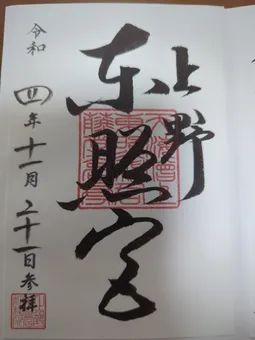 上野
東照宮
令和
四年十一月二十一日参拝